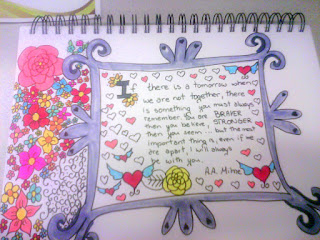 If there is a tomorrow when
we are not together, there
is something you must always
remember. You are BRAVER
than you believe, STRONGER
than you seem... but the most
important thing is, even if we
are apart, I will always
be with you.
A.A. Milne